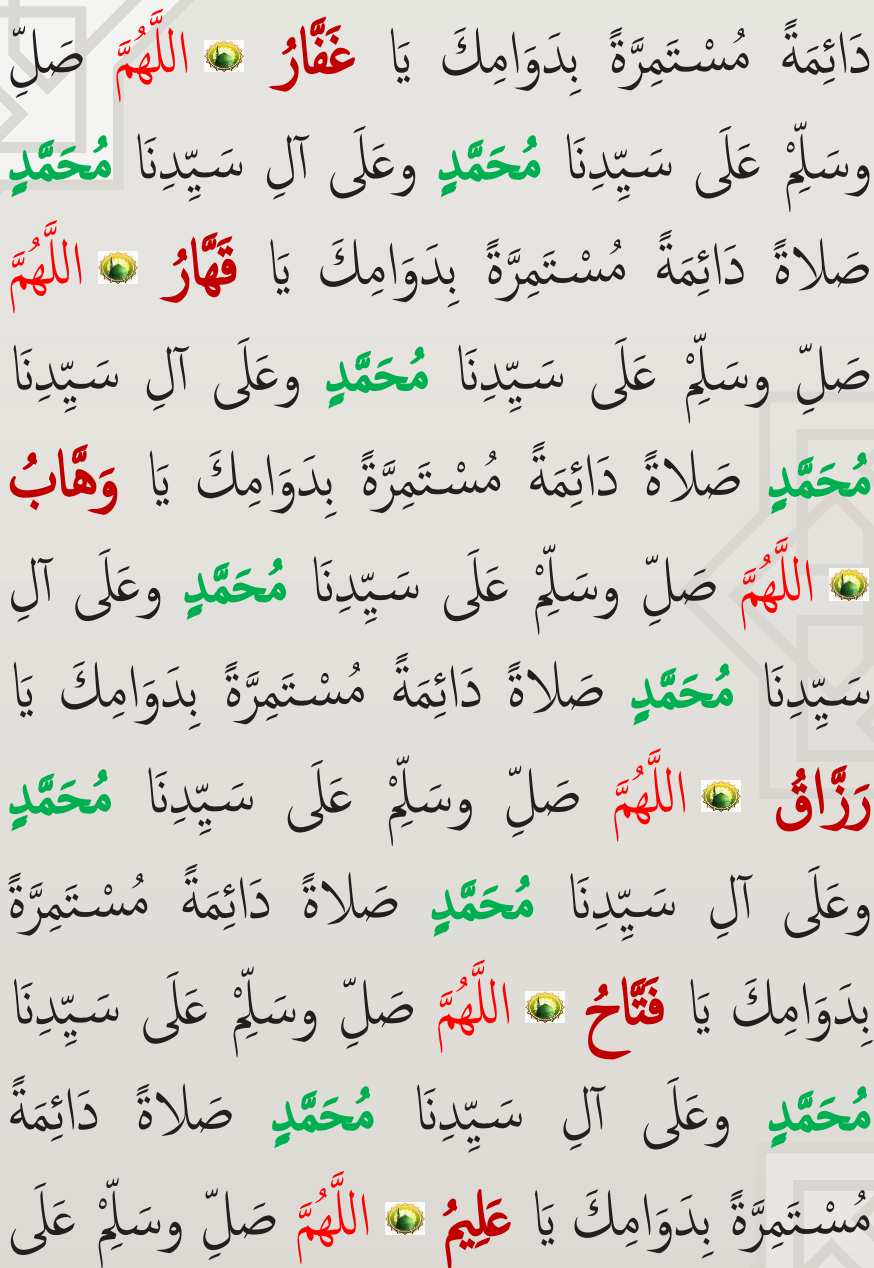 دَائِمَةً مُسْتَمِرَّةً بِدَوَامِكَ يَا غَفَّارُ اللَّهُمَّ صَلِّ
وسَلِّمْ عَلَى سَيِّدِنَا مُحَمَّدٍ وعَلَى آلِ سَيِّدِنَا مُحَمَّدٍ
صَلاةً دَائِمَةً مُسْتَمِرَّةً بِدَوَامِكَ يَا قَهَّارُ اللَّهُمَّ
صَلِّ وسَلِّمْ عَلَى سَيِّدِنَا مُحَمَّدٍ وعَلَى آلِ سَيِّدِنَا
مُحَمَّدٍ صَلاةً دَائِمَةً مُسْتَمِرَّةً بِدَوَامِكَ يَا وَهَّابُ
اللَّهُمَّ صَلِّ وسَلِّمْ عَلَى سَيِّدِنَا مُحَمَّدٍ وعَلَى آلِ
سَيِّدِنَا مُحَمَّدٍ صَلاةً دَائِمَةً مُسْتَمِرَّةً بِدَوَامِكَ يَا
رَزَّاقُ اللَّهُمَّ صَلِّ وسَلِّمْ عَلَى سَيِّدِنَا مُحَمَّدٍ
وعَلَى آلِ سَيِّدِنَا مُحَمَّدٍ صَلاةً دَائِمَةً مُسْتَمِرَّةً
بِدَوَامِكَ يَا فَتَّاحُ اللَّهُمَّ صَلِّ وسَلِّمْ عَلَى سَيِّدِنَا
مُحَمَّدٍ وعَلَى آلِ سَيِّدِنَا مُحَمَّدٍ صَلاةً دَائِمَةً
مُسْتَمِرَّةً بِدَوَامِكَ يَا عَلِيمُ اللَّهُمَّ صَلِّ وسَلِّمْ عَلَى